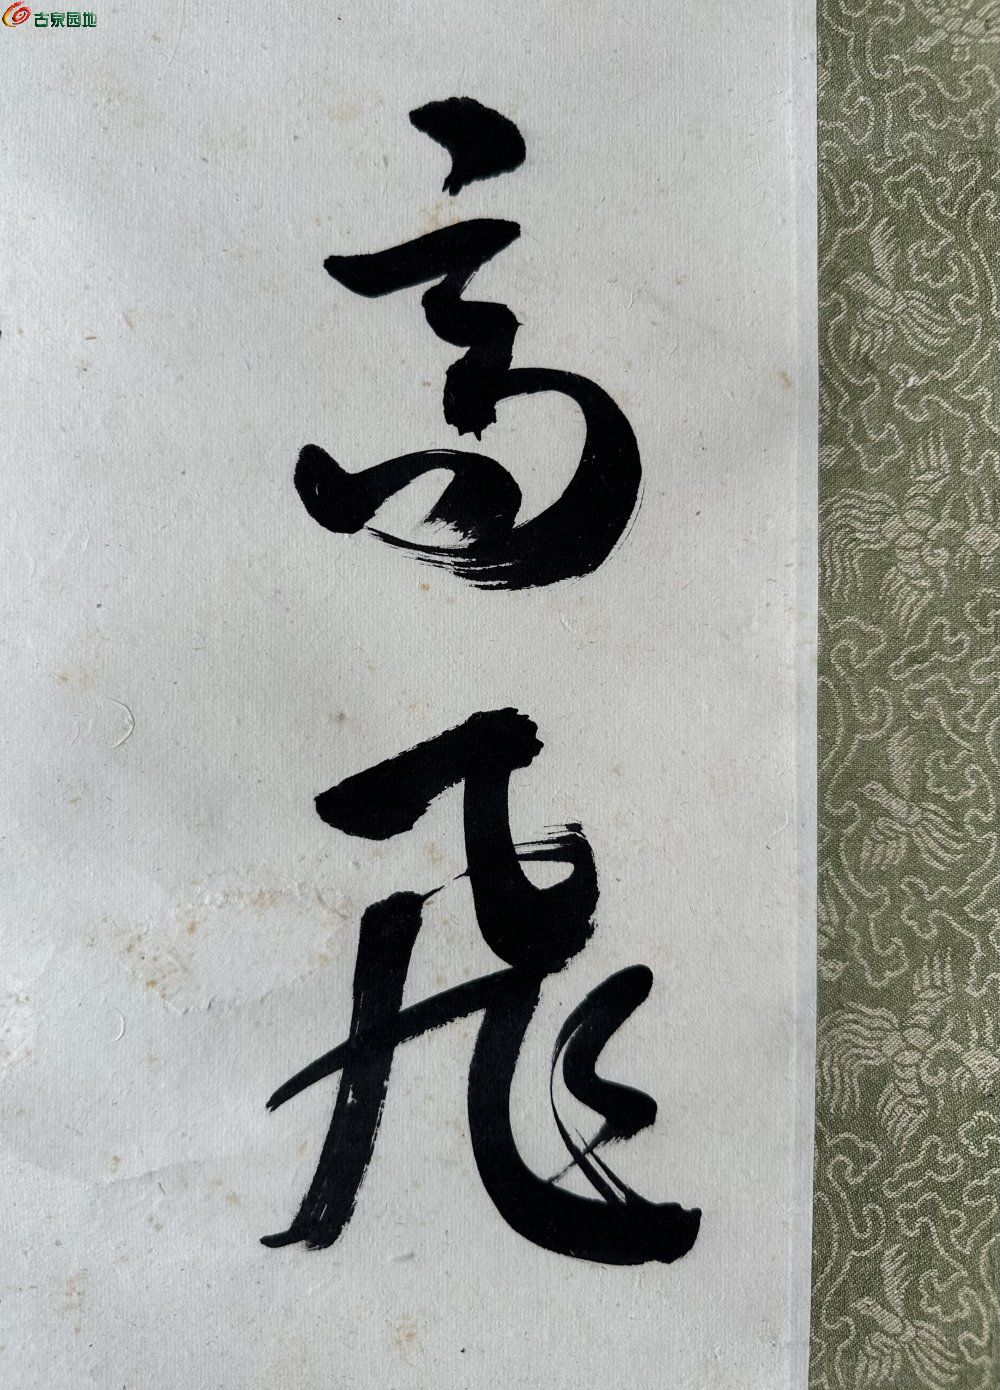 古泉园地
高
飛